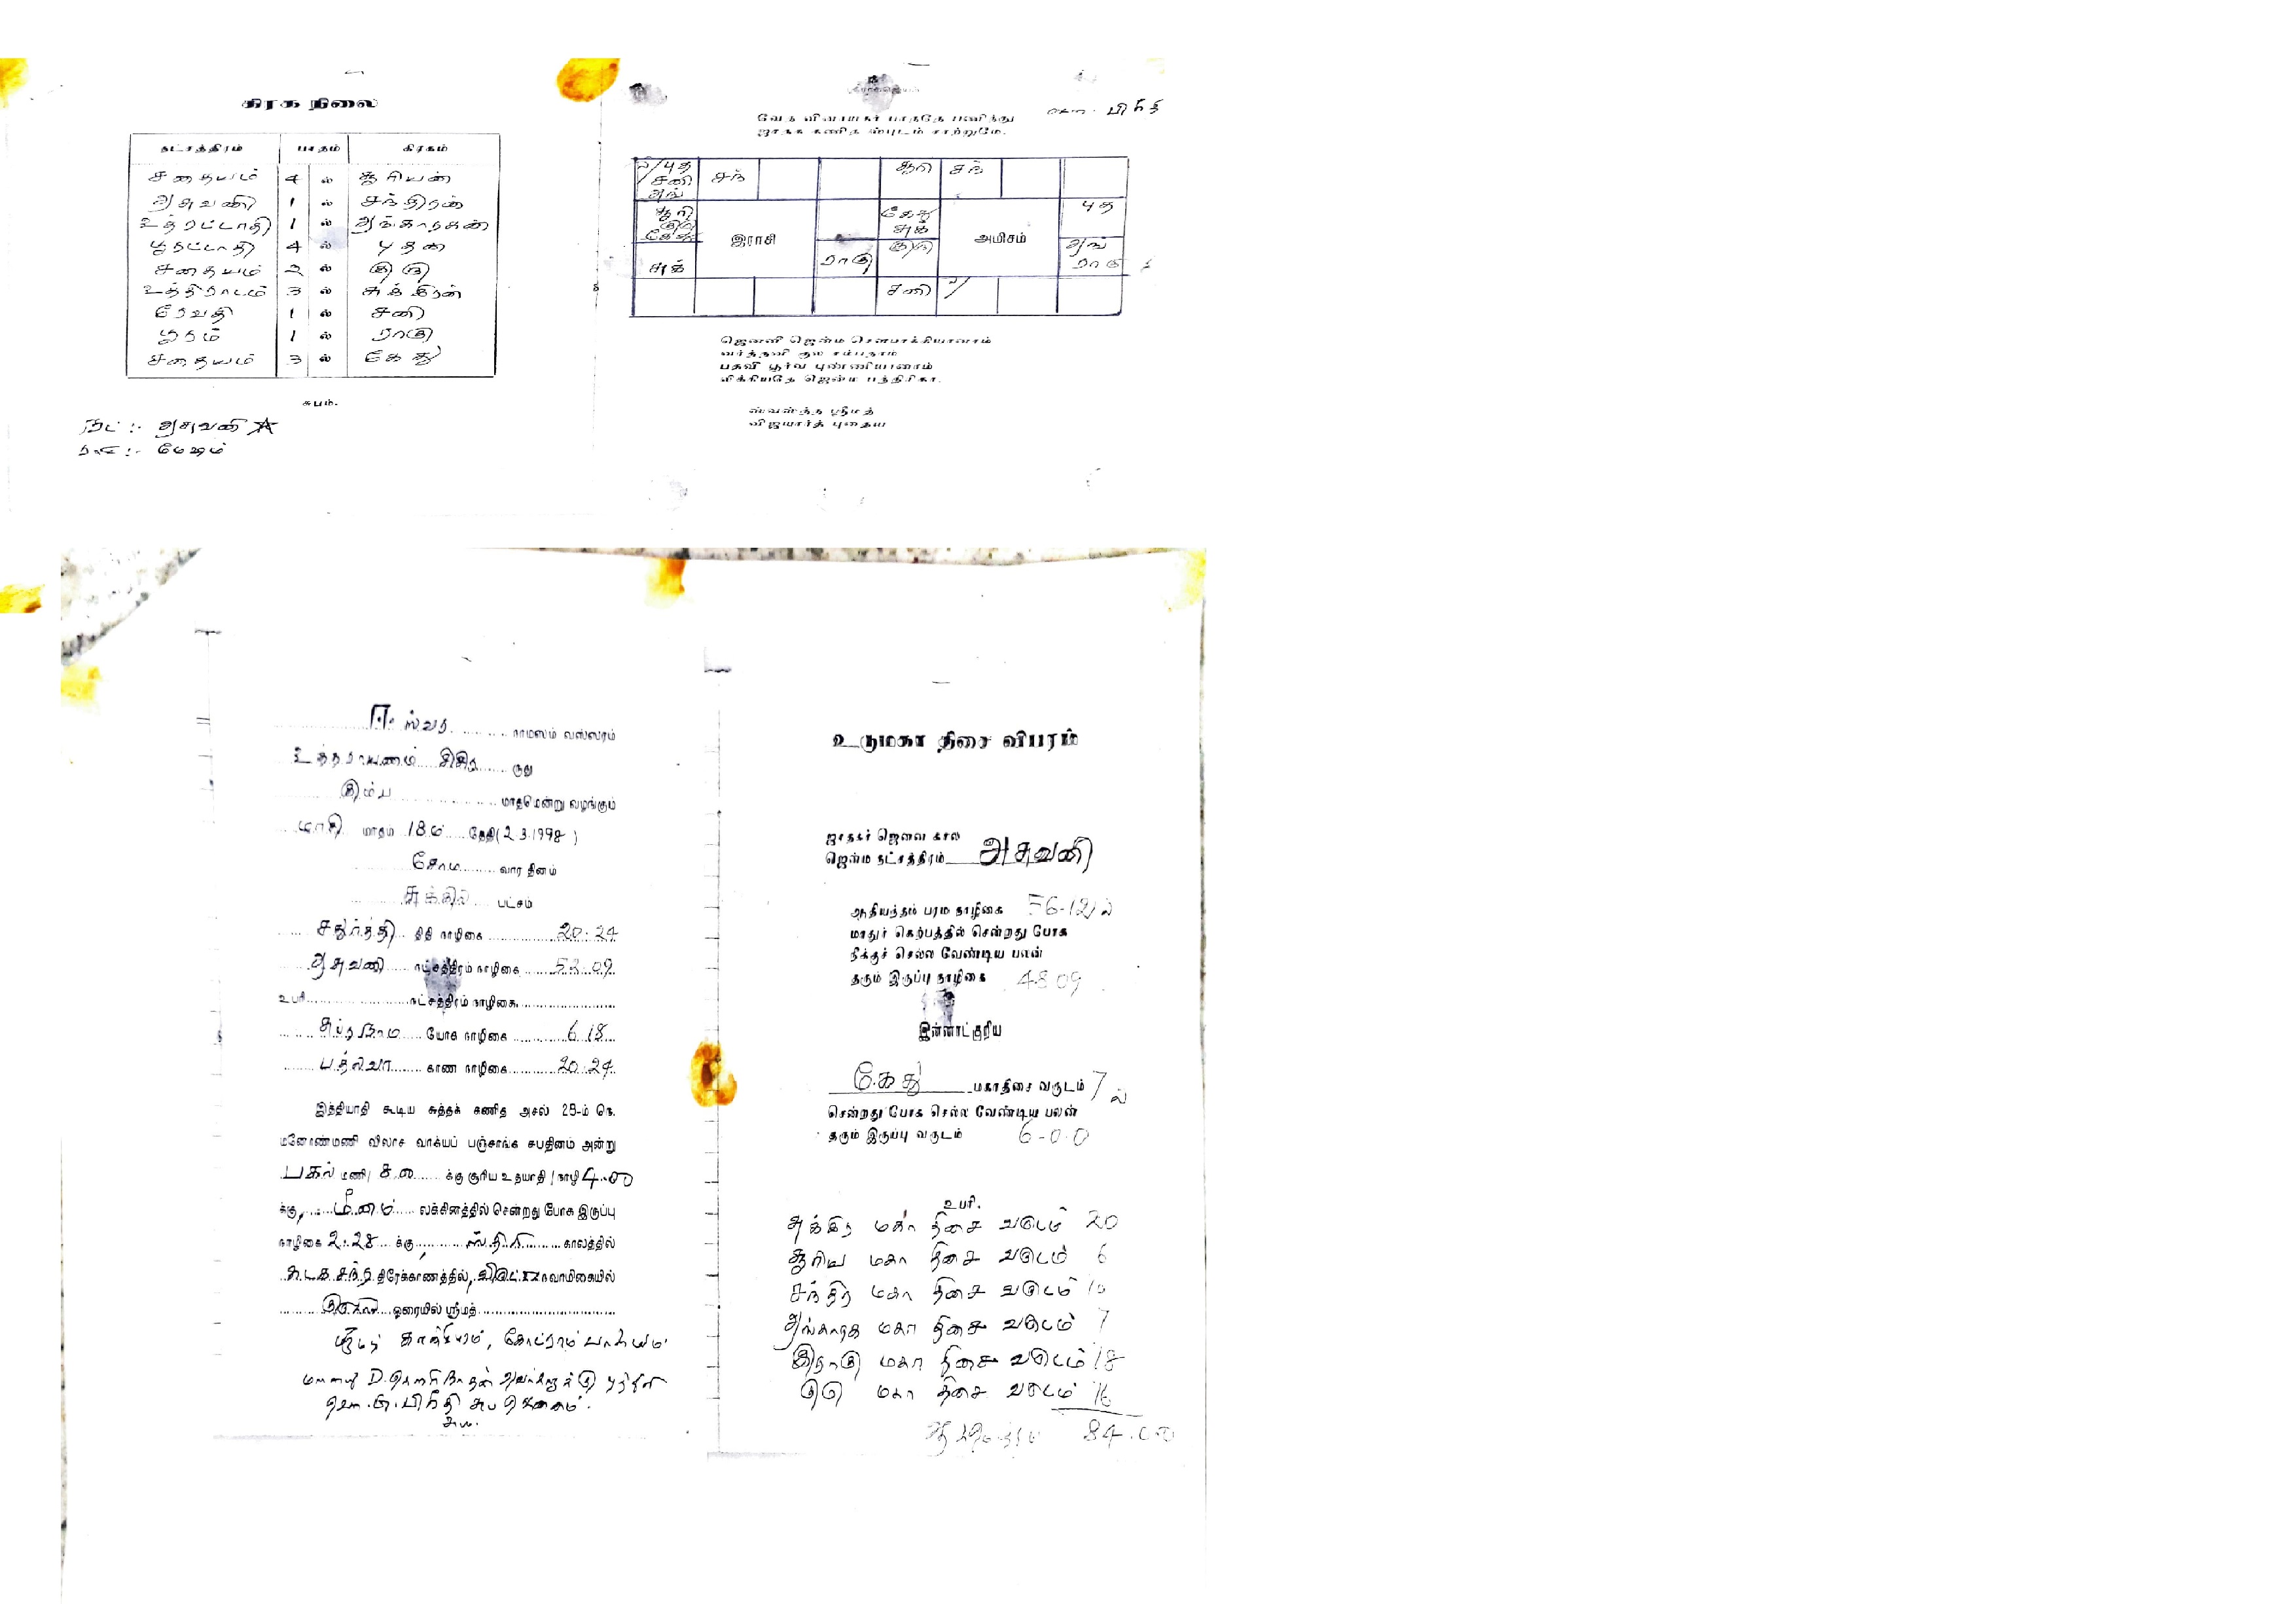 கிரக நிலை
நட்சத்திரம் பாதம் கிரகம்
சதையம் 4 ல் சூரியன்
அசுவணி 1 ல் சந்திரன்
உத்ரட்டாதி 1 ல் அங்காரகன்
பூரட்டாதி 4 ல் புதன்
சதையம் 2 ல் குரு
உத்திராடம் 3 ல் சுக்கிரன்
ரேவதி 1 ல் சனி
பூரம் 1 ல் ராகு
சதையம் 3 ல் கேது
சுபம்.
நட் :- அசுவணி
ராசி :- மேஷம்
வேத விநாயகர் பாதத்தே பணிந்து
ஜாதக கணித ஸ்புடம் சாற்றுமே.
ல/புத சனி அங் சந்
சூரி குரு கேது
சுக்
இராசி
ராகு
சூரி சந்
கேது சுக் புத
குரு அங் ராகு
அமிசம்
சனி ல/
ஜெனனி ஜென்ம சௌபாக்கியானாம்
வர்த்தனி குல சம்பதாம
பதவி பூர்வ புண்ணியானாம்
லிக்கியதே ஜென்ம பத்திரிகா.
ஸ்வஸ்த்த ஸ்ரீமத்
விஜயார்த் புதைய
ஈஸ்வர நாமஸம் வஸ்ஸரம்
உத்தராயணம் சிசிர ருது
கும்ப மாதமென்று வழங்கும்
மாசி மாதம் 18ம் தேதி (2.3.1998)
சோம வார தினம்
சுக்கில பட்சம்
சதுர்த்தி திதி நாழிகை 20.24
அசுவணி நட்சத்திரம் நாழிகை 52.09
உபரி நட்சத்திரம் நாழிகை
சுப்ரநாம யோக நாழிகை 6.18
பத்ரவா கரண நாழிகை 20.24
இத்தியாதி கூடிய சுத்தக் கணித அசல் 28-ம் நெ.
மனோண்மணி விலாச வாக்யப் பஞ்சாங்க சுபதினம் அன்று
பகல் மணி/ க்கு சூரிய உதயாதி / நாழி 4.00
க்கு, மீனம் லக்கினத்தில் சென்றது போக இருப்பு
நாழிகை 2.28 க்கு, ஸ்திரி காலத்தில்
கடக சந்ர திரேக்காணத்தில், நவாமிகையில்
ஓரையில் ஸ்ரீமத்
சுபம்.
உருமகா திசை விபரம்
ஜாதகர் ஜெனன கால
ஜென்ம நட்சத்திரம் அசுவணி
ஆதியந்தம் பரம நாழிகை 56-12ல்
மாதுர் கெற்பத்தில் சென்றது போக
நீக்குச் செல்ல வேண்டிய பலன்
தரும் இருப்பு நாழிகை 48 09
இன்னாட்குரிய
கேது மகாதிசை வருடம் 7 ல்
சென்றது போக செல்ல வேண்டிய பலன்
தரும் இருப்பு வருடம் 6-0-0
உபரி.
சுக்கிர மகா திசை வருடம் 20
சூரிய மகா திசை வருடம் 6
சந்திர மகா திசை வருடம் 10
அங்காரக மகா திசை வருடம் 7
இராகு மகா திசை வருடம் 18
குரு மகா திசை வருடம் 16
84.00